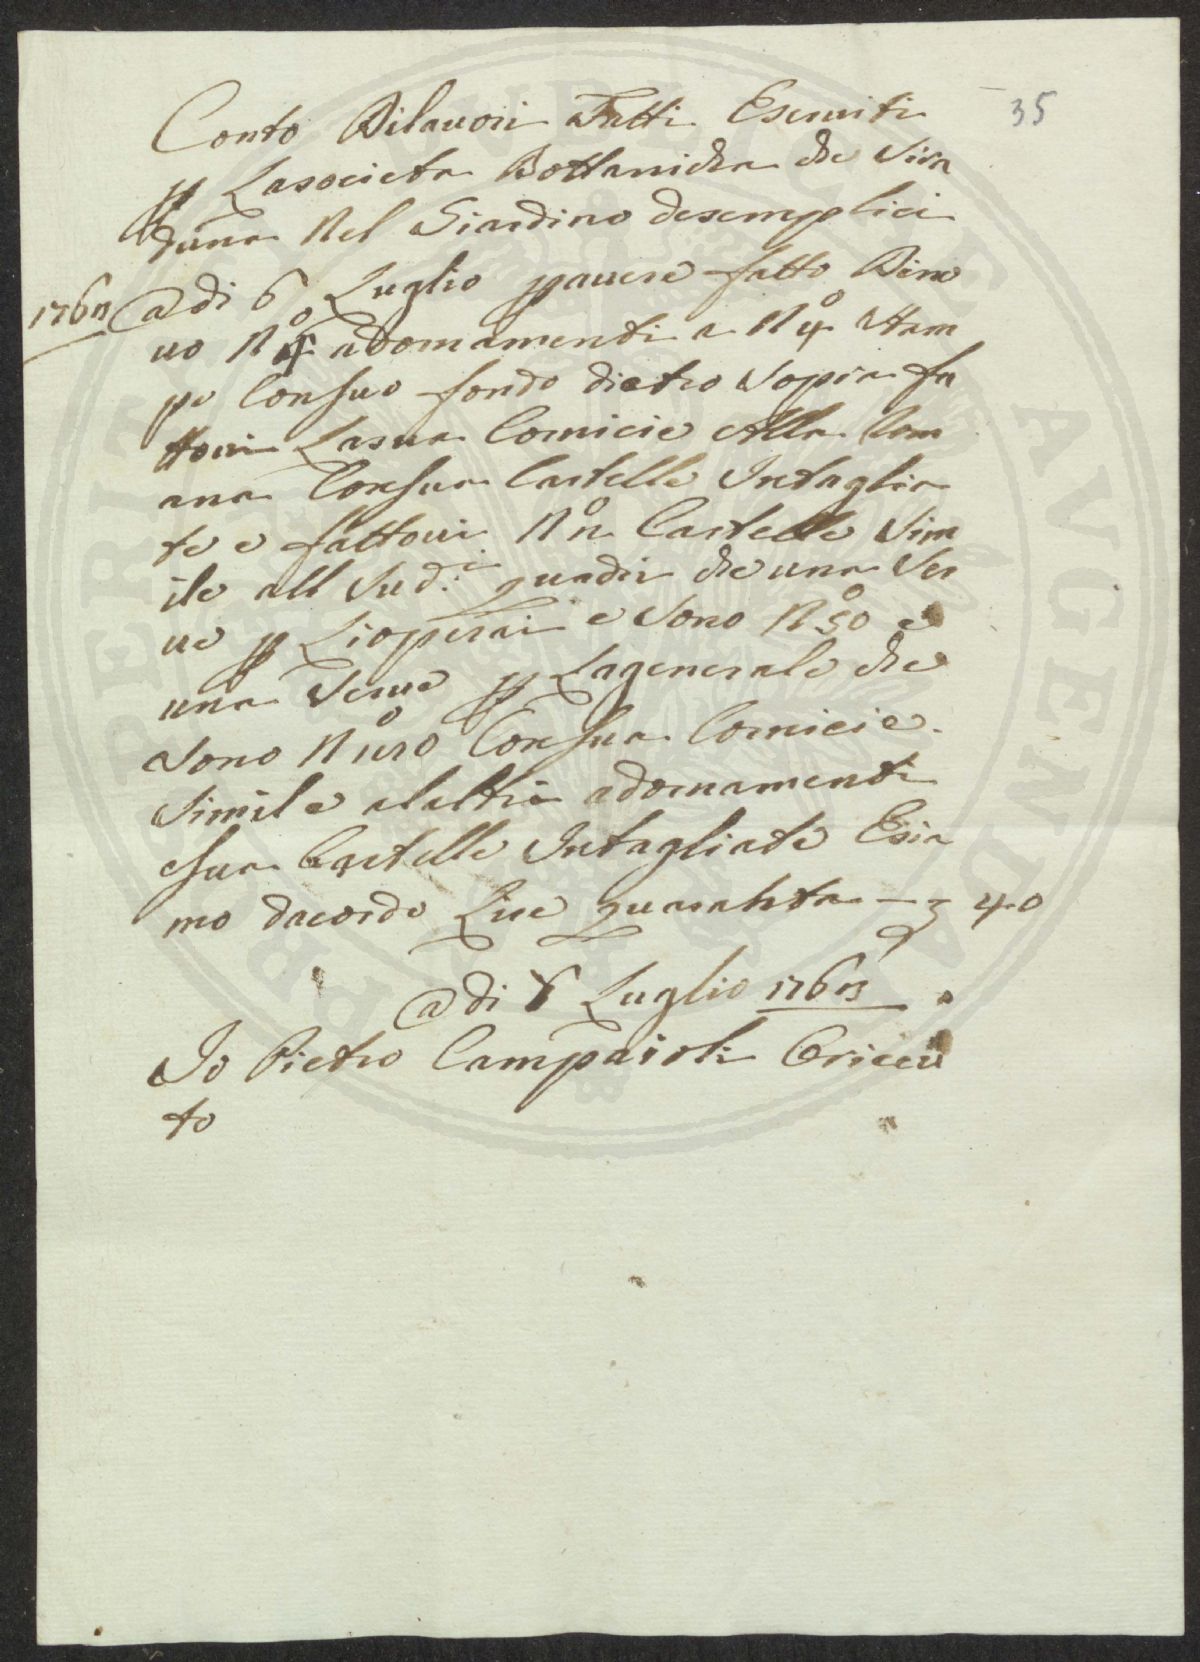 35
Conto Dilauori Fatti E seruiti
p Lasocieta Bottanicha che Sira
duna Nel Giardino desemplici
1763 @di 6 Luglio p auere fatto Dino
uo N° 4 adornamenti a N° 4 Stam
pe Con suo fondo dietro Sopra fa
ttoui La sua Cornicie Alla Rom
ana Con sua Cartelle Intaglia
te e fattoui N° 2 Cartelle Sim
ile all Sud.i quadri che una Ser
ue p Lioperai e Sono N° 50 e
una Serue p Lagenerale che
Sono N° 150 Con sua Cornicie
Simile alaltri adornamenti
e sua Cartelle Intagliate E sia
mo dacordo Lire quaranta — 40
@di 6 Luglio 1763
Io Pietro Campaioli Oriceu
to
PERIT AVGENDAE